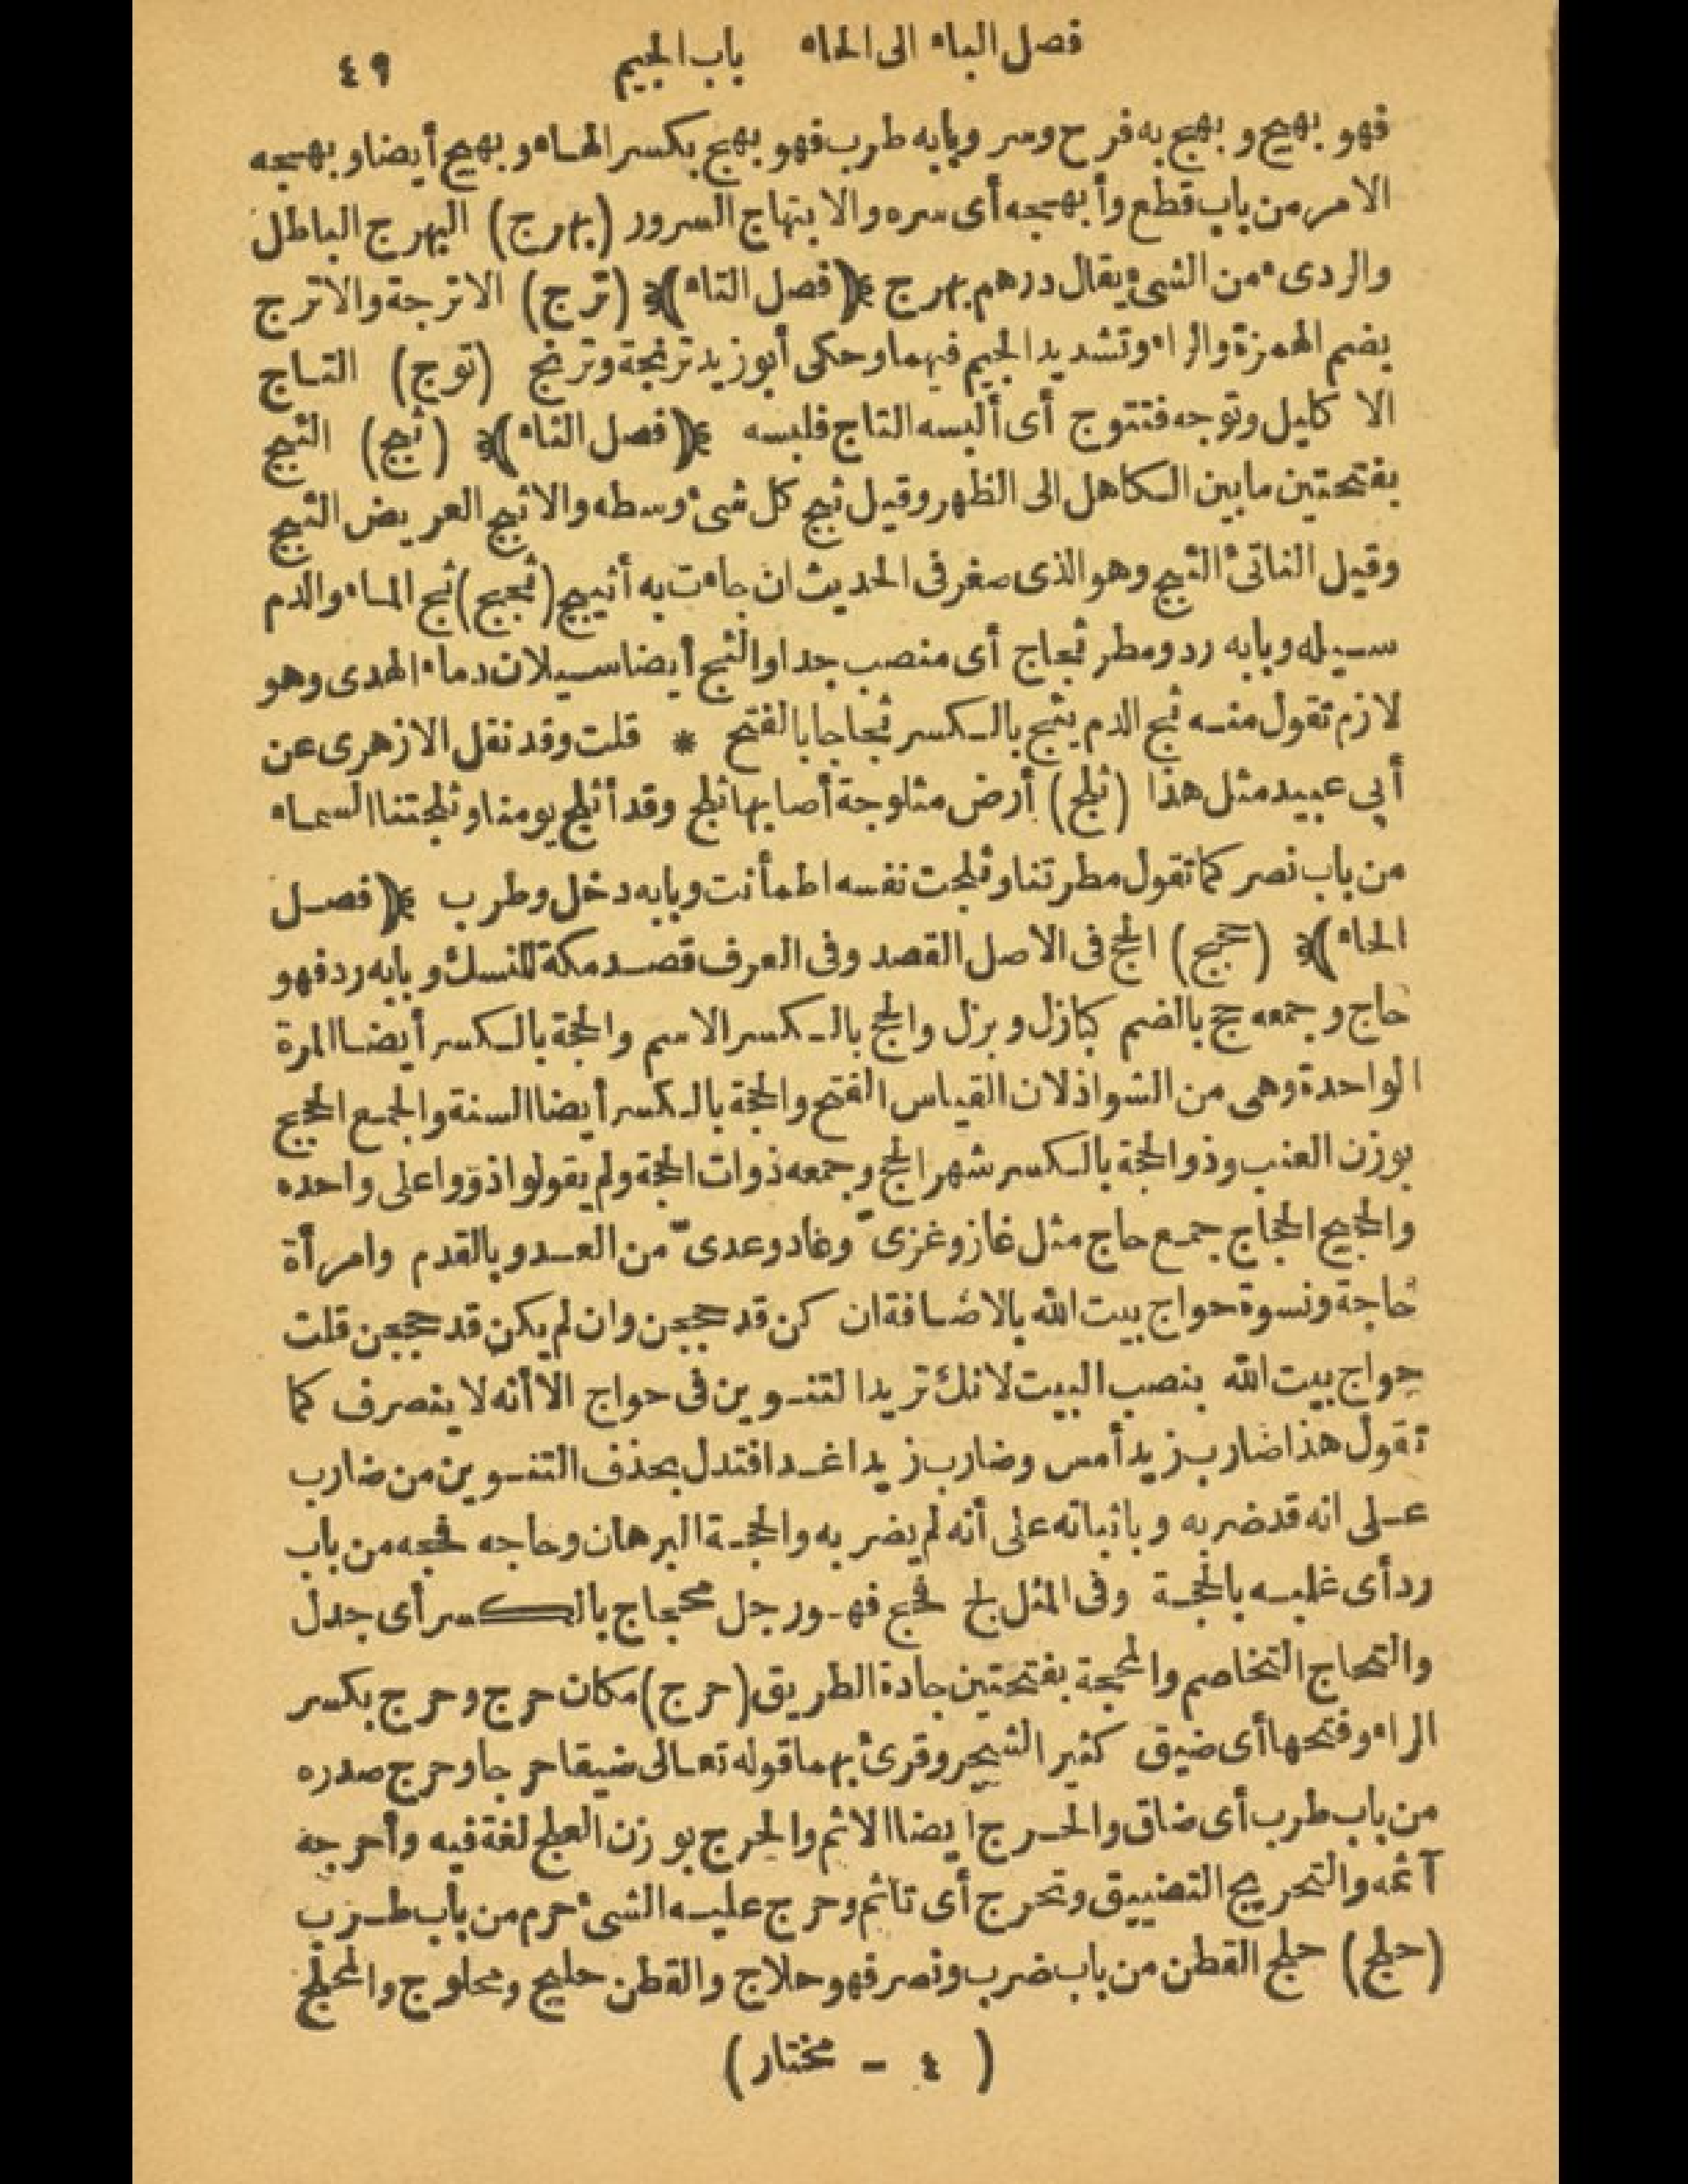 فصل الباء الى الحاء باب الجيم ٤٩
فهو بهيج و بهج به فرح وسر وبابه طرب فهو بهج بكسر الهاء و بهيج أيضا و بهجه
الامر من باب قطع وأبهجه أى سره والابتهاج السرور (بهرج) البهرج الباطل
والردىء من الشئ يقال درهم بهرج ﴿فصل التاء﴾ (ترج) الاترجة والاترج
بضم الهمزة والراء وتشديد الجيم فيهما وحكى أبو زيد ترنجة وترنج (توج) التاج
الا كليل وتوجه فتتوج أى ألبسه التاج فلبسه ﴿فصل الثاء﴾ (ثبج) الثبج
بفتحتين مابين الكاهل الى الظهر وقيل ثبج كل شئ وسطه والاثبج العريض الثبج
وقيل الناتئ الثبج وهو الذى صغر فى الحديث ان جاءت به أثيبج (ثجج) ثج الماء والدم
سيله وبابه رد ومطر ثجاج أى منصب جدا والثج أيضا سيلان دماء الهدى وهو
لازم تقول منه ثج الدم يثج بالكسر ثجاجا بالفتح * قلت وقد نقل الازهرى عن
أبى عبيد مثل هذا (ثلج) أرض مثلوجة أصابها ثلج وقد أثلج يومنا وثلجتنا السماء
من باب نصر كما تقول مطرتنا وثلجت نفسه اطمأنت وبابه دخل وطرب ﴿فصل
الحاء﴾ (حجج) الحج فى الاصل القصد وفى العرف قصد مكة للنسك و بابه رد فهو
حاج و جمعه حج بالضم كبازل و بزل والحج بالكسر الاسم والحجة بالكسر أيضا المرة
الواحدة وهى من الشواذ لان القياس الفتح والحجة بالكسر أيضا السنة والجمع الحجج
بوزن العنب وذو الحجة بالكسر شهر الحج و جمعه ذوات الحجة ولم يقولوا ذوو اعلى واحده
والحجيج الحجاج جمع حاج مثل غاز وغزىّ وعاد وعدىّ من العدو بالقدم وامرأة
حاجة ونسوة حواج بيت الله بالاضافة ان كن قد حججن وان لم يكن قد حججن قلت
حواج بيت الله بنصب البيت لانك تريد التنوين فى حواج الا أنه لا ينصرف كما
تقول هذا ضارب زيد أمس وضارب زيدا غدا فتدل بحذف التنوين من ضارب
على انه قد ضربه و باثباته على أنه لم يضربه والحجة البرهان وحاجه فحجه من باب
رد أى غلبه بالحجة وفى المثل لج فحج فهو رجل محجاج بالكسر أى جدل
والتحاج التخاصم والمحجة بفتحتين جادة الطريق (حرج) مكان حرج وحرج بكسر
الراء وفتحها أى ضيق كثير الشجر وقرئ بهما قوله تعالى ضيقا حرجا وحرج صدره
من باب طرب أى ضاق والحرج ايضا الاثم والحرج بوزن العلج لغة فيه وأحرجه
آثمه والتحريج التضييق وتحرج أى تاثم وحرج عليه الشئ حرم من باب طرب
(حلج) حلج القطن من باب ضرب ونصر فهو حلاج والقطن حليج ومحلوج والمحلج
( ٤ - مختار)